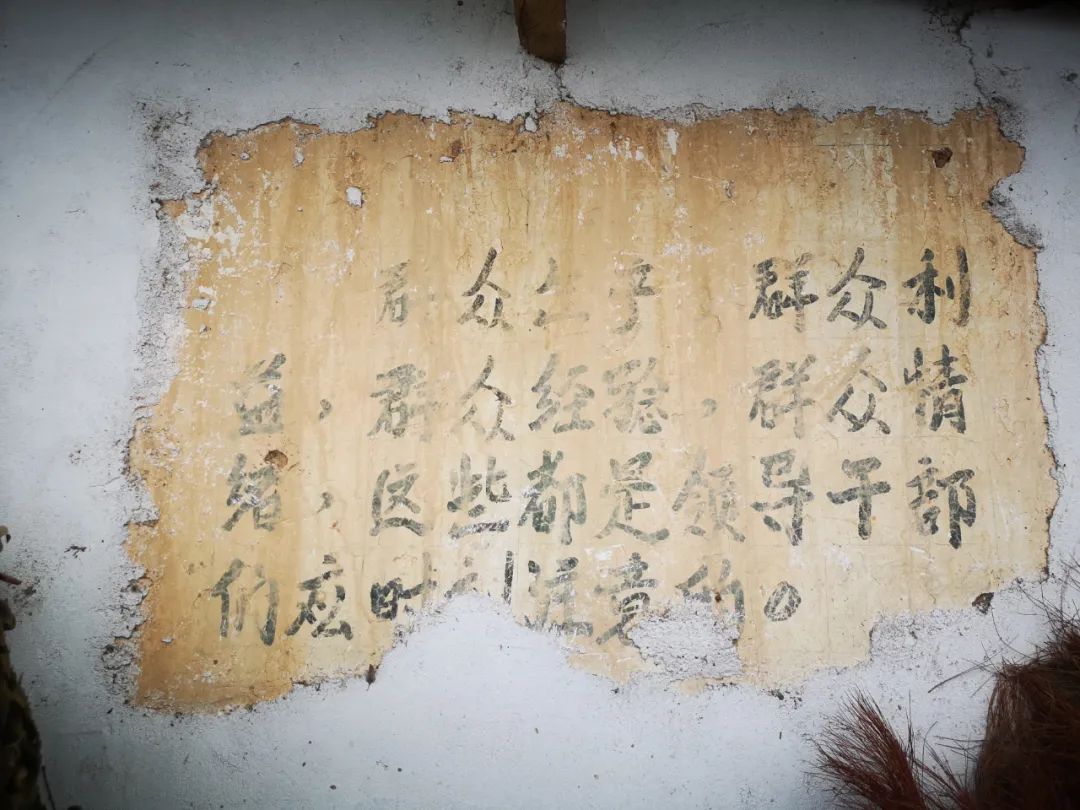 群众生产,群众利
益,群众经验,群众情
绪,这些都是领导干部
们应时刻注意的。